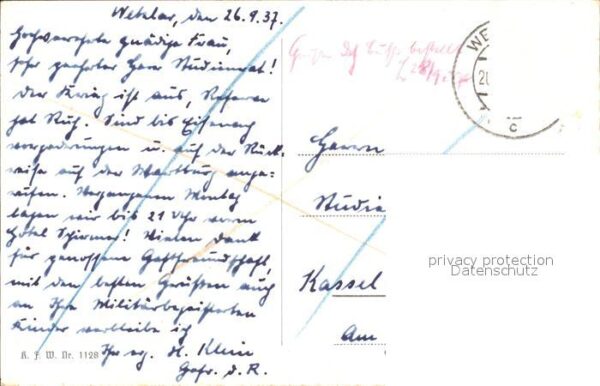 Wetzlar, den 26.9.37.
Hochverehrte gnädige Frau,
sehr geehrter Herr Studienrat!
Der Krieg ist aus, Reserve
hat Ruh. Sind bis Eisenach
vorgedrungen u. auf der Rück-
reise auf der Wartburg ange-
rufen. Vergangenen Montag
lagen wir bis 21 Uhr vorm
Hotel Schirmer! Vielen Dank
für genossene Gastfreundschaft,
mit den besten Grüßen auch
an Ihre Militärbegeisterten
Kinder verbleibe ich
Ihr erg. H. Klein
Gefr. d. R.
K. F. W. Nr. 1128
WE
c
Herrn
Studie
Kassel
Am
privacy protection
Datenschutz